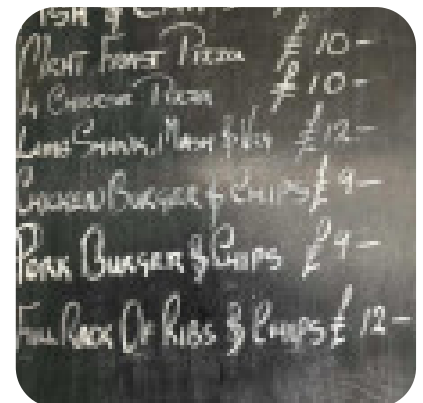 & Chips
Meat Feast Pizza £10-
4 Cheese Pizza £10-
Lamb Shank, Mash & Veg £12-
Chicken Burger & Chips £9-
Pork Burger & Chips £9-
Full Rack Of Ribs & Chips £12-